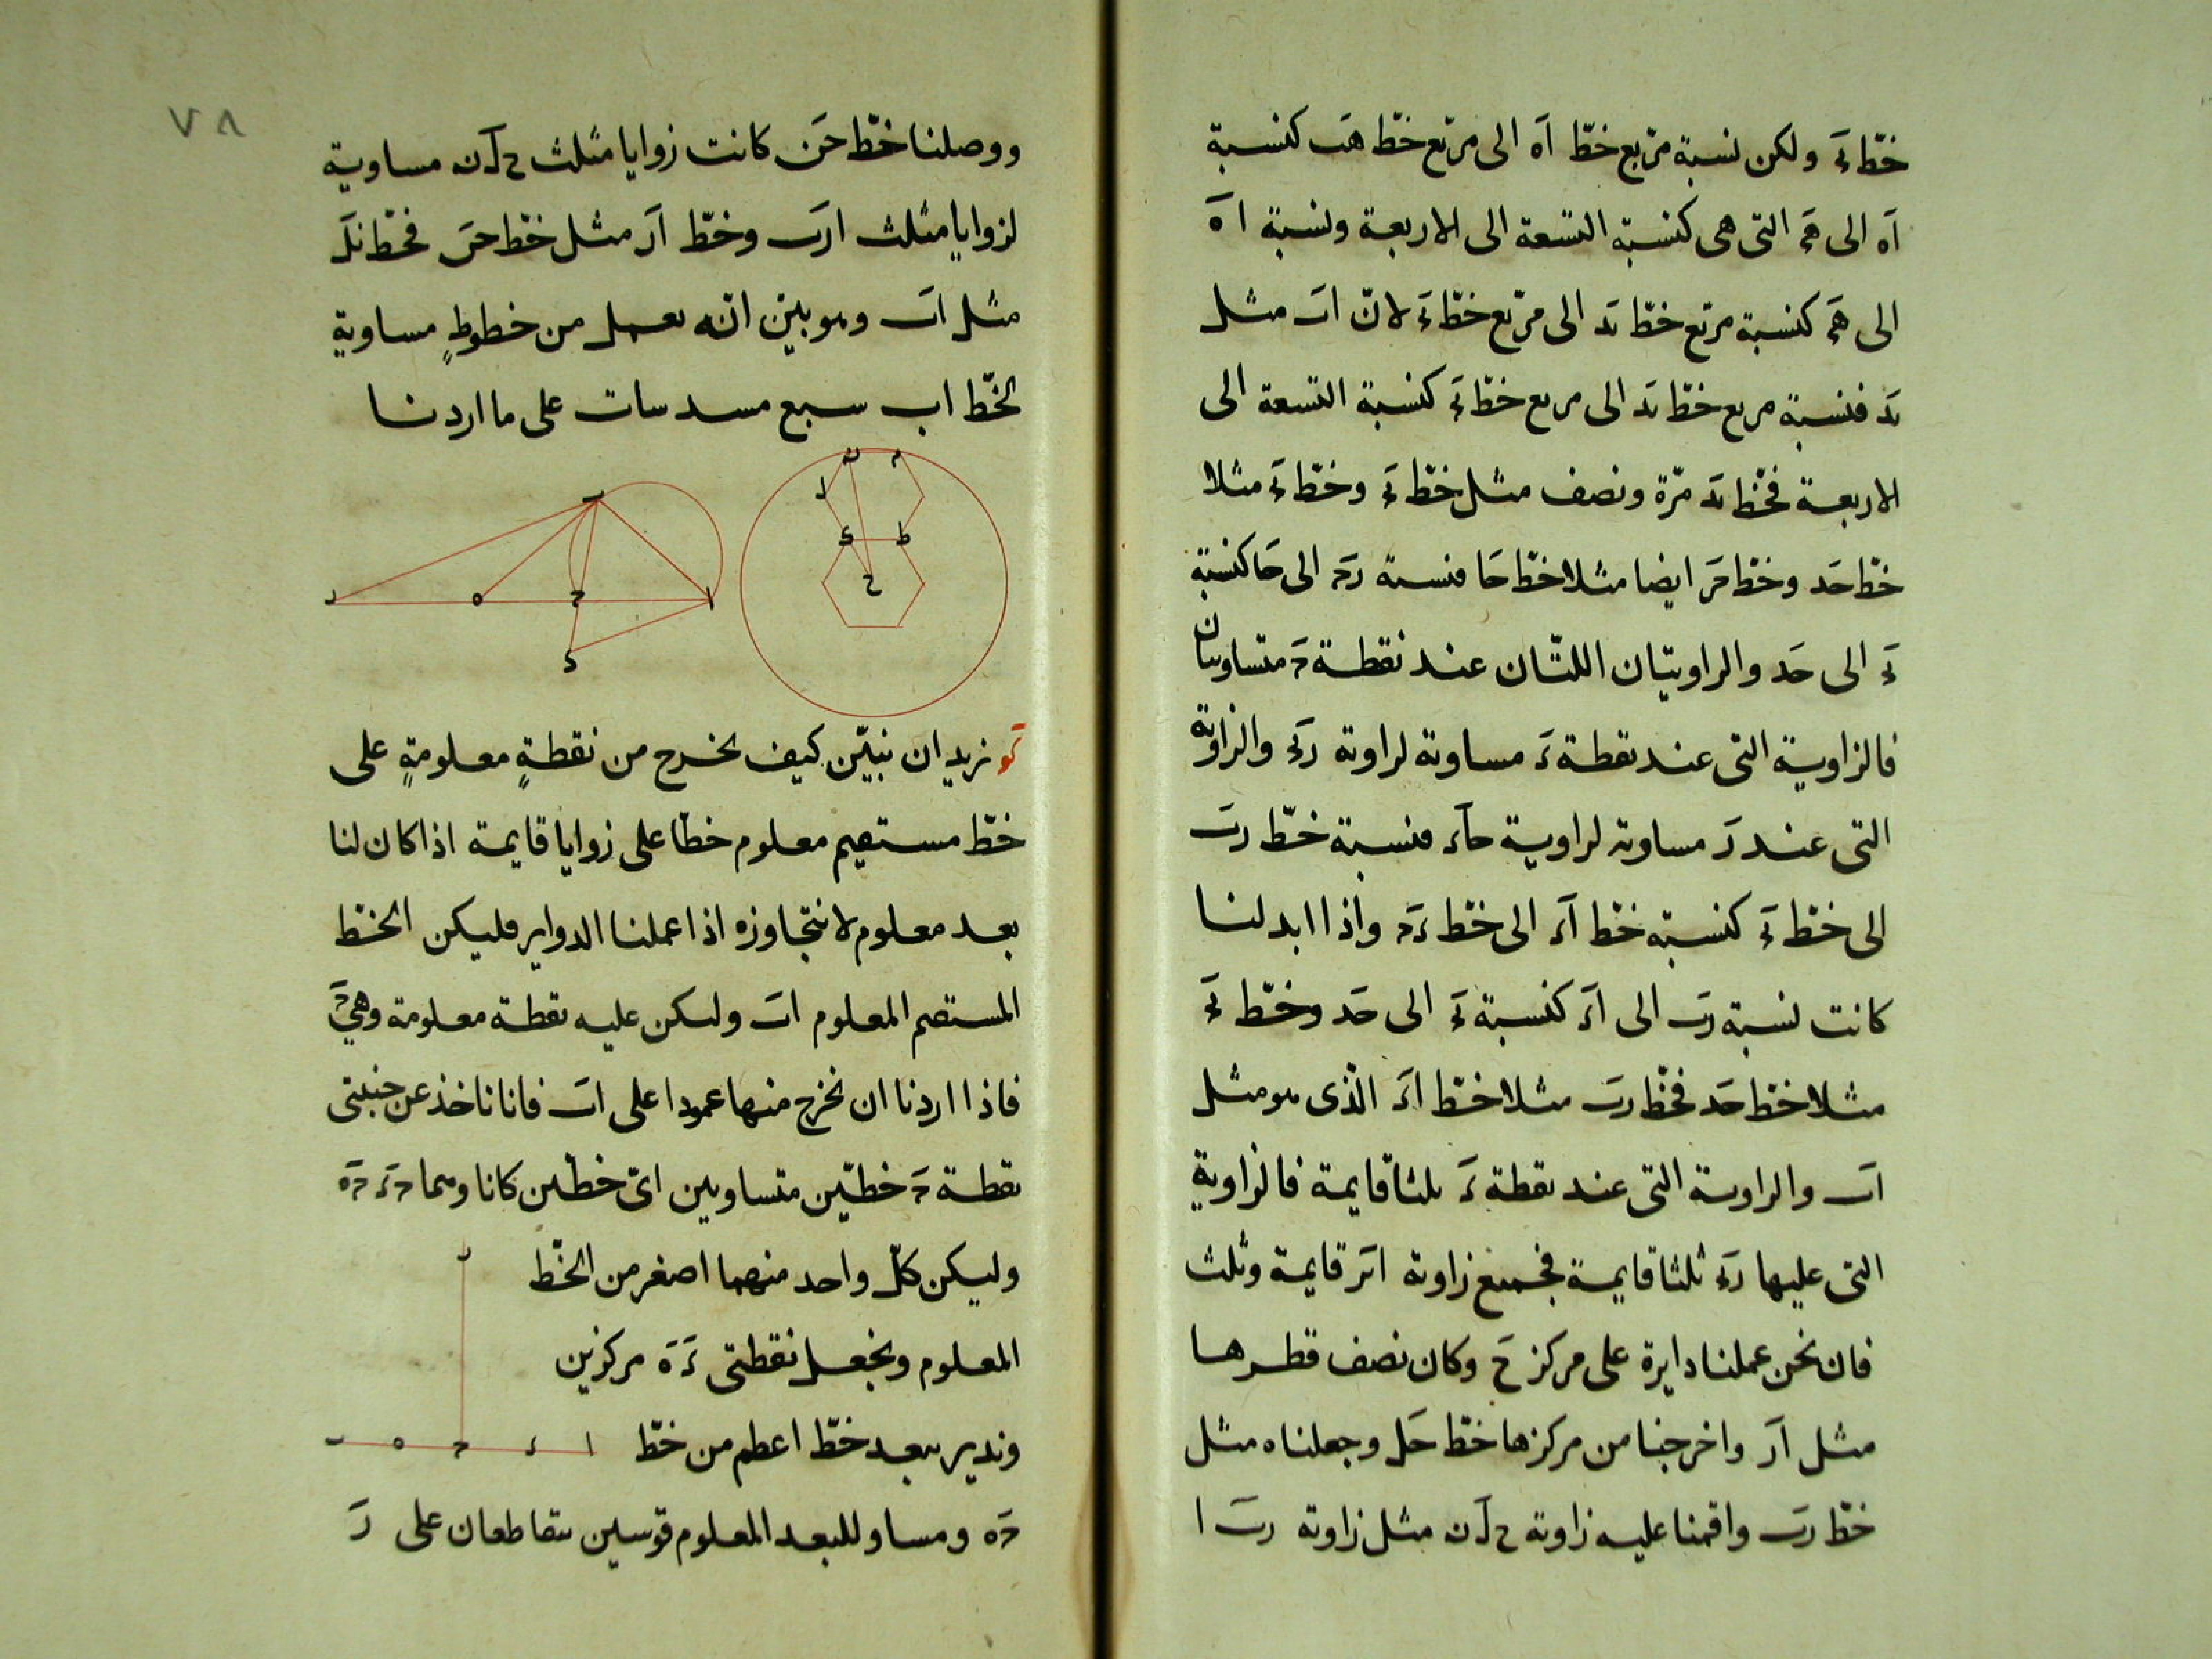 خطّ دَحَ ولكن نسبة مربّع خطّ اَه الى مربّع خطّ هَب كنسبة
اَه الى هَحَ التى هى كنسبة التسعة الى الاربعة ونسبة اهَ
الى هَحَ كنسبة مربّع خطّ بَد الى مربّع خطّ دَحَ لانّ اَب مثل
بَد فنسبة مربع خطّ بَد الى مربع خطّ دَحَ كنسبة التسعة الى
الاربعة فخّط بَد مرّة ونصف مثل خطّ بَحَ وخطّ بَحَ مثلا
خطّ حَد وخطّ حَر ايضا مثلا خطّ حَا فنسبة رَحَ الى حَا كنسبة
بَحَ الى حَد والزاويتان اللتّان عند نقطة حَ متساويتان
فالزاوية التى عند نقطة دَ مساوية لزاوية رَبَحَ والزاوية
التى عند رَ مساوية لزاوية حَاَد فنسبة خطّ رَب
الى خطّ بَحَ كنسبة خطّ اَد الى خطّ دَحَ واذا ابدلنا
كانت نسبة رَب الى اَد كنسبة بَحَ الى حَد وخطّ بَحَ
مثلا خطّ حَد فخّط رَب مثلا خطّ اَد الّذى هو مثل
اَب والزاوية التى عند نقطة دَ ثلثا قايمة فالزاوية
التى عليها رَبَحَ ثلثا قايمة فجميع زاوية ابَر قايمة وثلث
فان نحن عملنا دايرة على مركز حَ وكان نصف قطرها
مثل اَر واخرجنا من مركزها خطّ حَل وجعلناه مثل
خطّ رَب واقمنا عليه زاوية ح لَ ن مثل زاوية رَب ا
٧٨
ووصلنا خطّ حَن كانت زوايا مثلث ح لَ ن مساوية
لزوايا مثلث ارَب وخطّ اَر مثل خطّ حَن فخّط نَل
مثل اَب وهو بيّن انّه يعمل من خطوطٍ مساوية
لخّط اب سبع مسدسات على ما اردنا
ن م
ل
ى ط
ح
ب
ر ه ح ا
د
كَو نريد ان نبيّن كيف نخرج من نقطةٍ معلومةٍ على
خطّ مستقيم معلوم خطّا على زوايا قايمة اذا كان لنا
بعد معلوم لا نتجاوزه اذا عملنا الدواير فليكن الخطّ
المستقيم المعلوم اَب وليكن عليه نقطة معلومة وهى حَ
فاذا اردنا ان نخرج منها عمودا على اَب فانا ناخذ عن جنبتى
نقطة حَ خطّين متساويين اىّ خطّين كانا وهما حَد حَه
وليكن كلّ واحد منهما اصغر من الخطّ
المعلوم ونجعل نقطتى دَ هَ مركزين
وندير ببعد خطّ اعظم من خطّ
حَه ومساو للبعد المعلوم قوسين يتقاطعان على رَ
ر
ب ه ح د ا